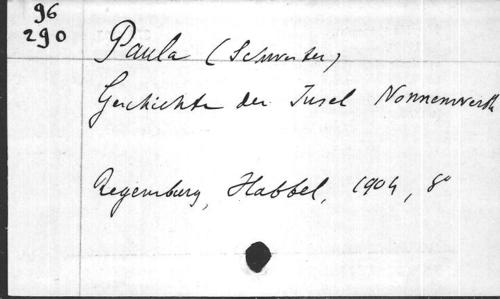 96
290
Paula (Schwester)
Geschichte der Insel Nonnenwerth
Regensburg, Habbel, 1904, 8°